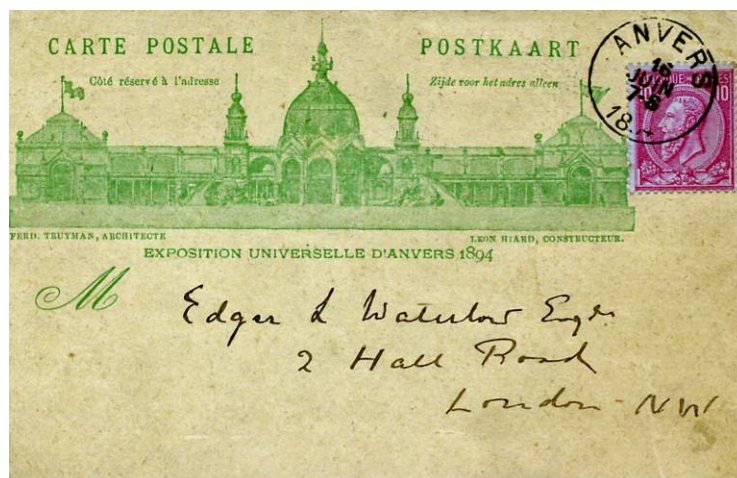 CARTE POSTALE POSTKAART
Côté réservé à l'adresse Zijde voor het adres alleen
ANVERS
16
JUIN
7-S
18
BELGIQUE
10 10
FERD. TRUYMAN, ARCHITECTE LEON HIARD, CONSTRUCTEUR.
EXPOSITION UNIVERSELLE D'ANVERS 1894
M
Edgar L Waterlow Esqre
2 Hall Road
London NW